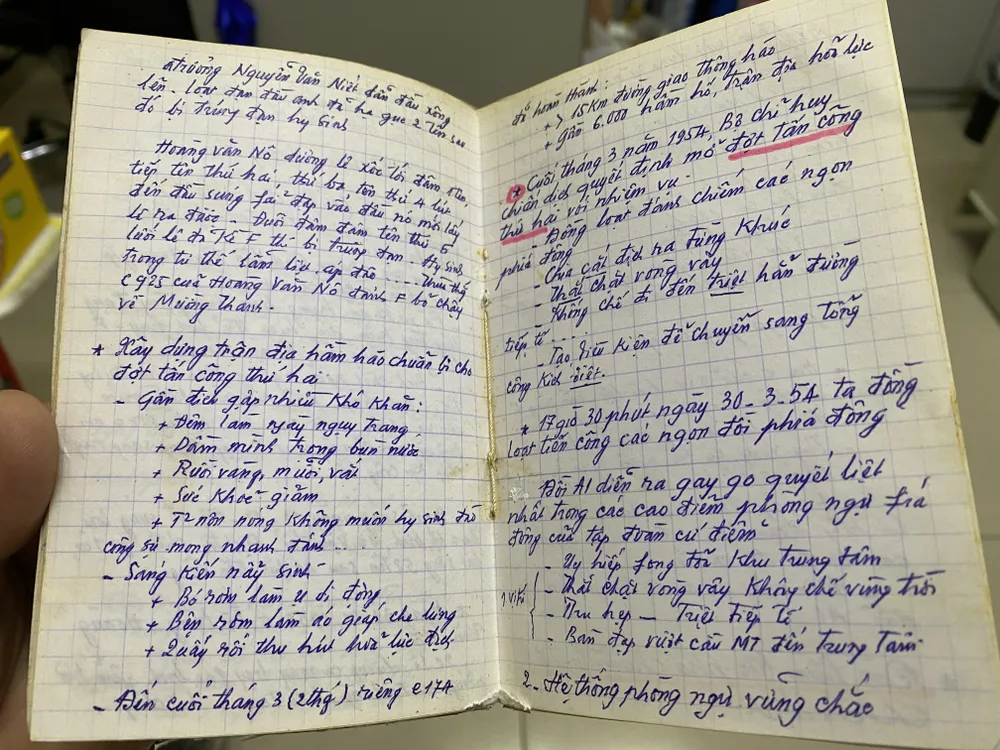 atrưởng Nguyễn Văn Niết dẫn đầu xông
lên. Loạt đạn đầu anh đã hạ gục 2 tên sau
đó bị trúng đạn hy sinh
Hoàng Văn Nô dương lê xốc tới đâm
tiếp tên thứ hai, thứ ba, tên thứ 4 lút
đến đầu súng fải đạp vào đầu nó mới lấy
lê ra được. Đuổi đâm tên thứ 5
lưỡi lê đã kề F thì bị trúng đạn. Hy sinh
trong tư thế lẫm liệt áp đảo.....
C925 của Hoàng Văn Nô đánh F bỏ chạy
về Mường Thanh.
* Xây dựng trận địa hầm hào chuẩn bị cho
đợt tấn công thứ hai
- Gần địch gặp nhiều khó khăn:
+ Đêm làm ngày ngụy trang
+ Dầm mình trong bùn nước
+ Ruồi vàng, muỗi, vắt
+ Sức khoẻ giảm
+ T² nôn nóng không muốn hy sinh đào
công sự mong nhanh đánh...
- Sáng kiến nảy sinh
+ Bó rơm làm ụ di động
+ Bện rơm làm áo giáp che lưng
+ Quấy rối thu hút hoả lực địch
- Đến cuối tháng 3 (2thg') riêng e174
đã hoàn thành:
+ > 15km đường giao thông hào
+ Gần 6.000 hầm hố, trận địa hoả lực
* Cuối tháng 3 năm 1954, Bộ chỉ huy
chiến dịch quyết định mở đợt tấn công
thứ hai với nhiệm vụ.
- Đồng loạt đánh chiếm các ngọn
phía đông
- Chia cắt địch ra từng khúc
- Thắt chặt vòng vây
- Khống chế đi đến triệt hẳn đường
tiếp tế....
- Tạo điều kiện để chuyển sang tổng
công kích
* 17 giờ 30 phút ngày 30-3-54 ta đồng
loạt tiến công các ngọn đồi phía đông
Đồi A1 diễn ra gay go quyết liệt
nhất trong các cao điểm phòng ngự fiá
đông của tập đoàn cứ điểm
- Uy hiếp fong toả khu trung tâm
1 vị trí - Thắt chặt vòng vây khống chế vùng trời
- Thu hẹp - Triệt tiếp tế
- Bàn đạp vượt cầu MT đến trung tâm
2 - Hệ thống phòng ngự vững chắc